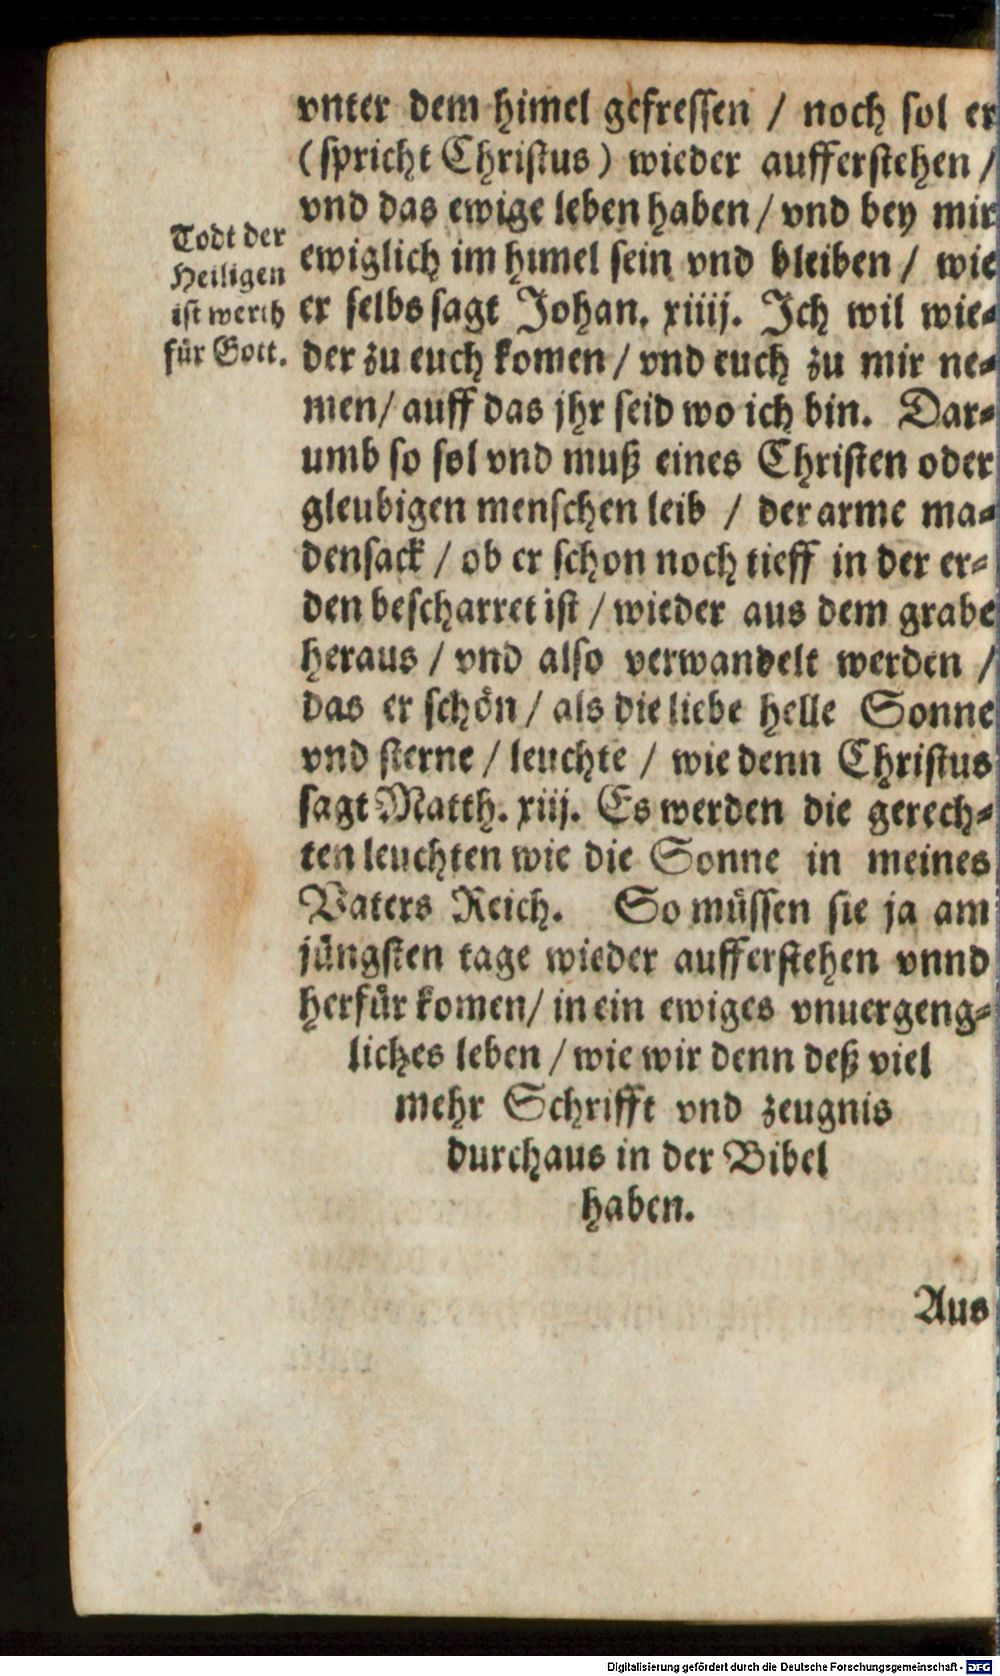 vnter dem himel gefressen / noch sol er
(spricht Christus) wieder aufferstehen /
vnd das ewige leben haben / vnd bey mir
ewiglich im himel sein vnd bleiben / wie
er selbs sagt Johan. xiiij. Ich wil wie-
der zu euch komen / vnd euch zu mir ne-
men / auff das jhr seid wo ich bin. Dar-
umb so sol vnd muß eines Christen oder
gleubigen menschen leib / der arme ma-
densack / ob er schon noch tieff in der er-
den bescharret ist / wieder aus dem grabe
heraus / vnd also verwandelt werden /
das er schön / als die liebe helle Sonne
vnd sterne / leuchte / wie denn Christus
sagt Matth. xiij. Es werden die gerech-
ten leuchten wie die Sonne in meines
Vaters Reich. So müssen sie ja am
jüngsten tage wieder aufferstehen vnnd
herfür komen / in ein ewiges vnuergeng-
liches leben / wie wir denn deß viel
mehr Schrifft vnd zeugnis
durchaus in der Bibel
haben.
Todt der
Heiligen
ist werth
für Gott.
Aus
Digitalisierung gefördert durch die Deutsche Forschungsgemeinschaft - DFG